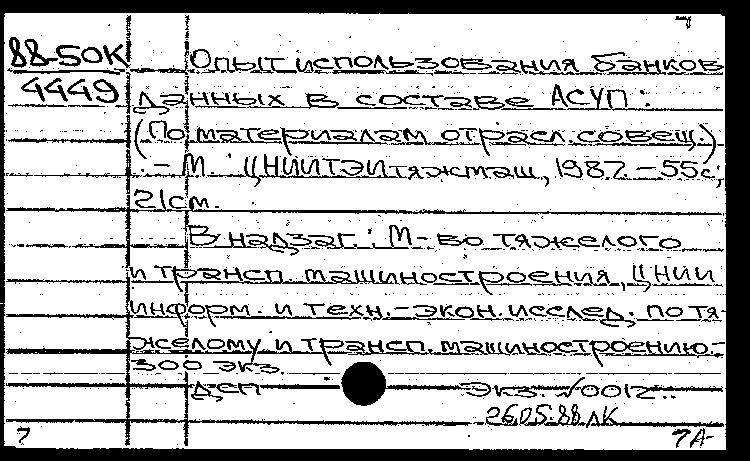 7
88-50К Опыт использования банков
4449 данных в составе АСУП :
(По материалам отрасл. совещ.)
. – М. : ЦНИИТЭИтяжмаш, 1987. – 55с;
21см.
В надзаг. : М-во тяжелого
и трансп. машиностроения, ЦНИИ
информ. и техн.-экон. исслед. по тя-
желому и трансп. машиностроению.-
300 экз.
ДСП Экз. №0012..
26.05.88 ЛК
7 7А-